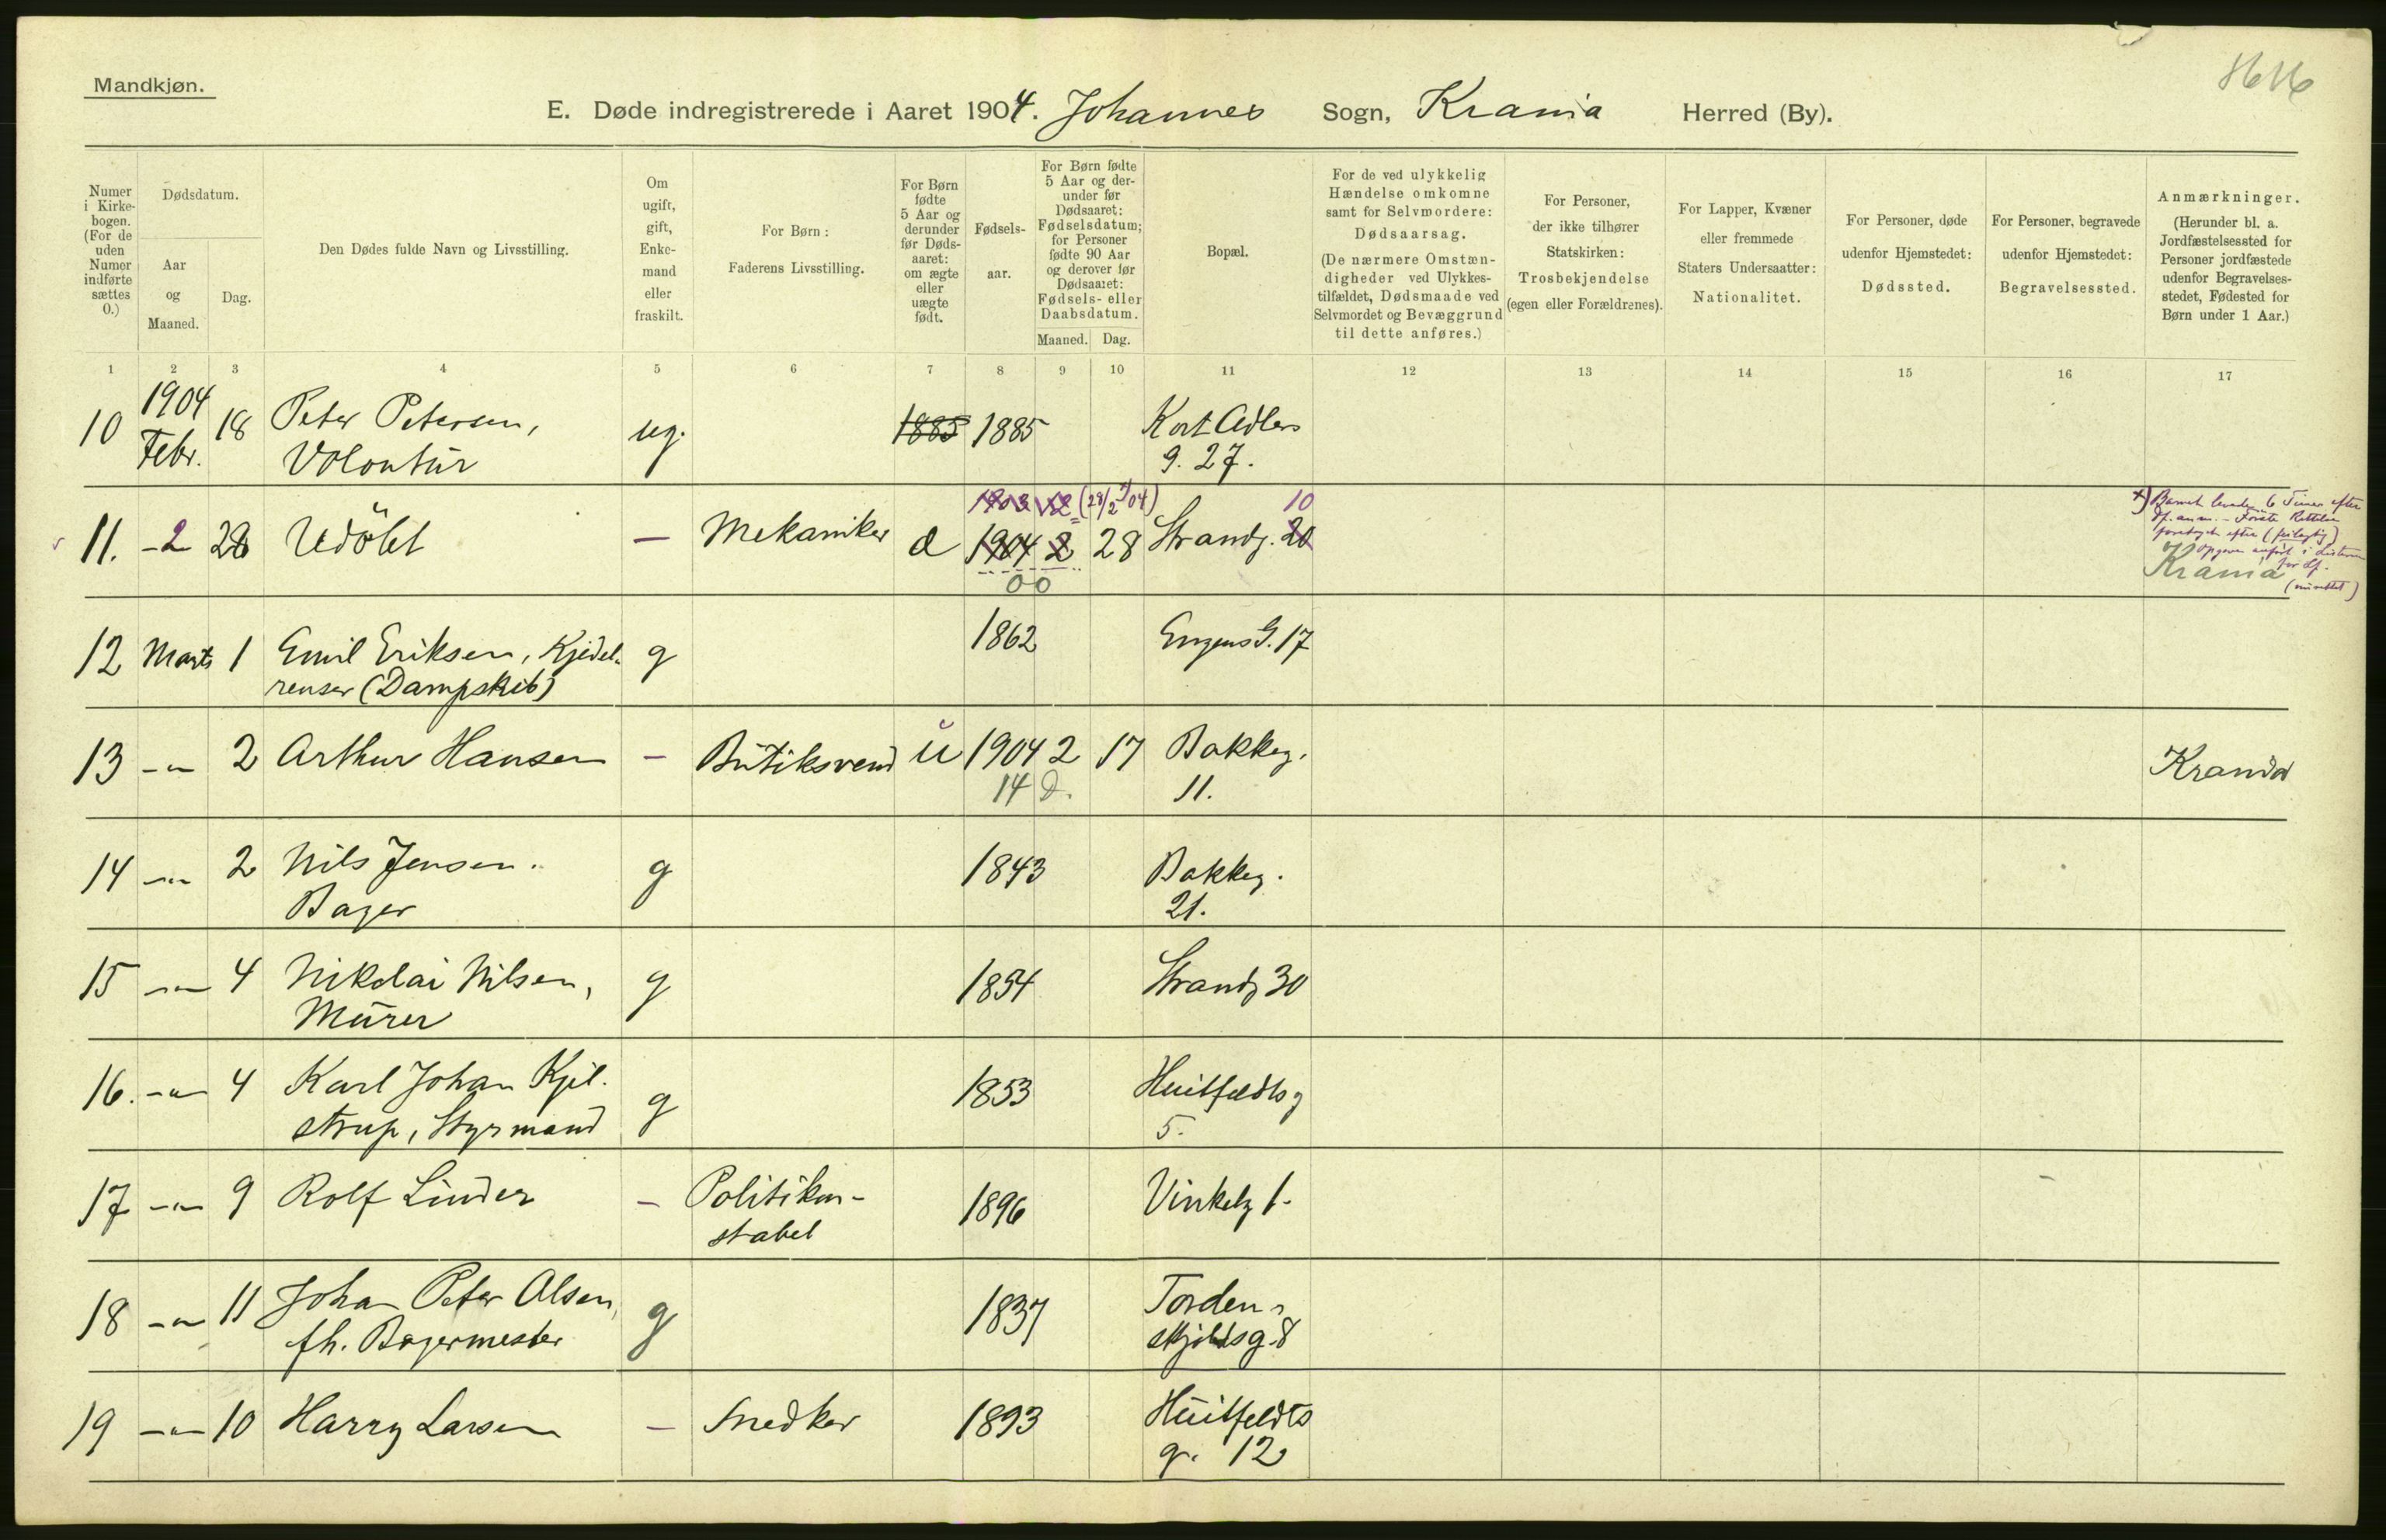 Mandkjøn.
E. Døde indregistrerede i Aaret 1904. Johannes Sogn, Krania Herred (By).
Numer i Kirke-bogen. (For de uden Numer indførte sættes 0.)
Dødsdatum.
Aar og Maaned.
Dag.
Den Dødes fulde Navn og Livsstilling.
Om ugift, gift, Enke-mand eller fraskilt.
For Børn: Faderens Livsstilling.
For Børn fødte 5 Aar og derunder før Døds-aaret: om ægte eller uægte født.
Fødsels-aar.
For Børn fødte 5 Aar og der-under før Dødsaaret: Fødselsdatum; for Personer fødte 90 Aar og derover før Dødsaaret: Fødsels- eller Daabsdatum.
Maaned. Dag.
Bopæl.
For de ved ulykkelig Hændelse omkomne samt for Selvmordere: Dødsaarsag. (De nærmere Omstæn-digheder ved Ulykkes-tilfældet, Dødsmaade ved Selvmordet og Bevæggrund til dette anføres.)
For Personer, der ikke tilhører Statskirken: Trosbekjendelse (egen eller Forældrenes).
For Lapper, Kvæner eller fremmede Staters Undersaatter: Nationalitet.
For Personer, døde udenfor Hjemstedet: Dødssted.
For Personer, begravede udenfor Hjemstedet: Begravelsessted.
Anmærkninger. (Herunder bl. a. Jordfæstelsessted for Personer jordfæstede udenfor Begravelses-stedet, Fødested for Børn under 1 Aar.)
1 2 3 4 5 6 7 8 9 10 11 12 13 14 15 16 17
10 1904 Febr. 18 Peter Petersen, ug. 1885 1885 Kort Adlers
Volontür g. 27.
1903 12 (28/2 04) 10
11. -2 28 Udöbt — Mekaniker 1904 2 28 Strandg. 20
00 Krania
12 Marts 1 Emil Eriksen, Kjedel- g 1862 Engens G. 17
renser (Dampskib)
13 -"- 2 Arthur Hansen — Butiksvend u 1904 2 17 Bakkeg. Krania
14 d. 11.
14 -"- 2 Nils Jensen. g 1843 Bakkeg.
Bager 21.
15 -"- 4 Nikolai Nilsen, g 1854 Strandg 30
Murer
16. -"- 4 Karl Johan Kjel- g 1853 Huitfeldts g
strup, Styrmand 5.
17 -"- 9 Rolf Linder — Politikon- 1896 Vinkelg 1.
stabel
18 -"- 11 Johan Peter Olsen, g 1837 Torden-
fh. Bagermester skjoldsg. 8
19 -"- 10 Harry Larsen — Snedker 1893 Huitfeldts
g. 12